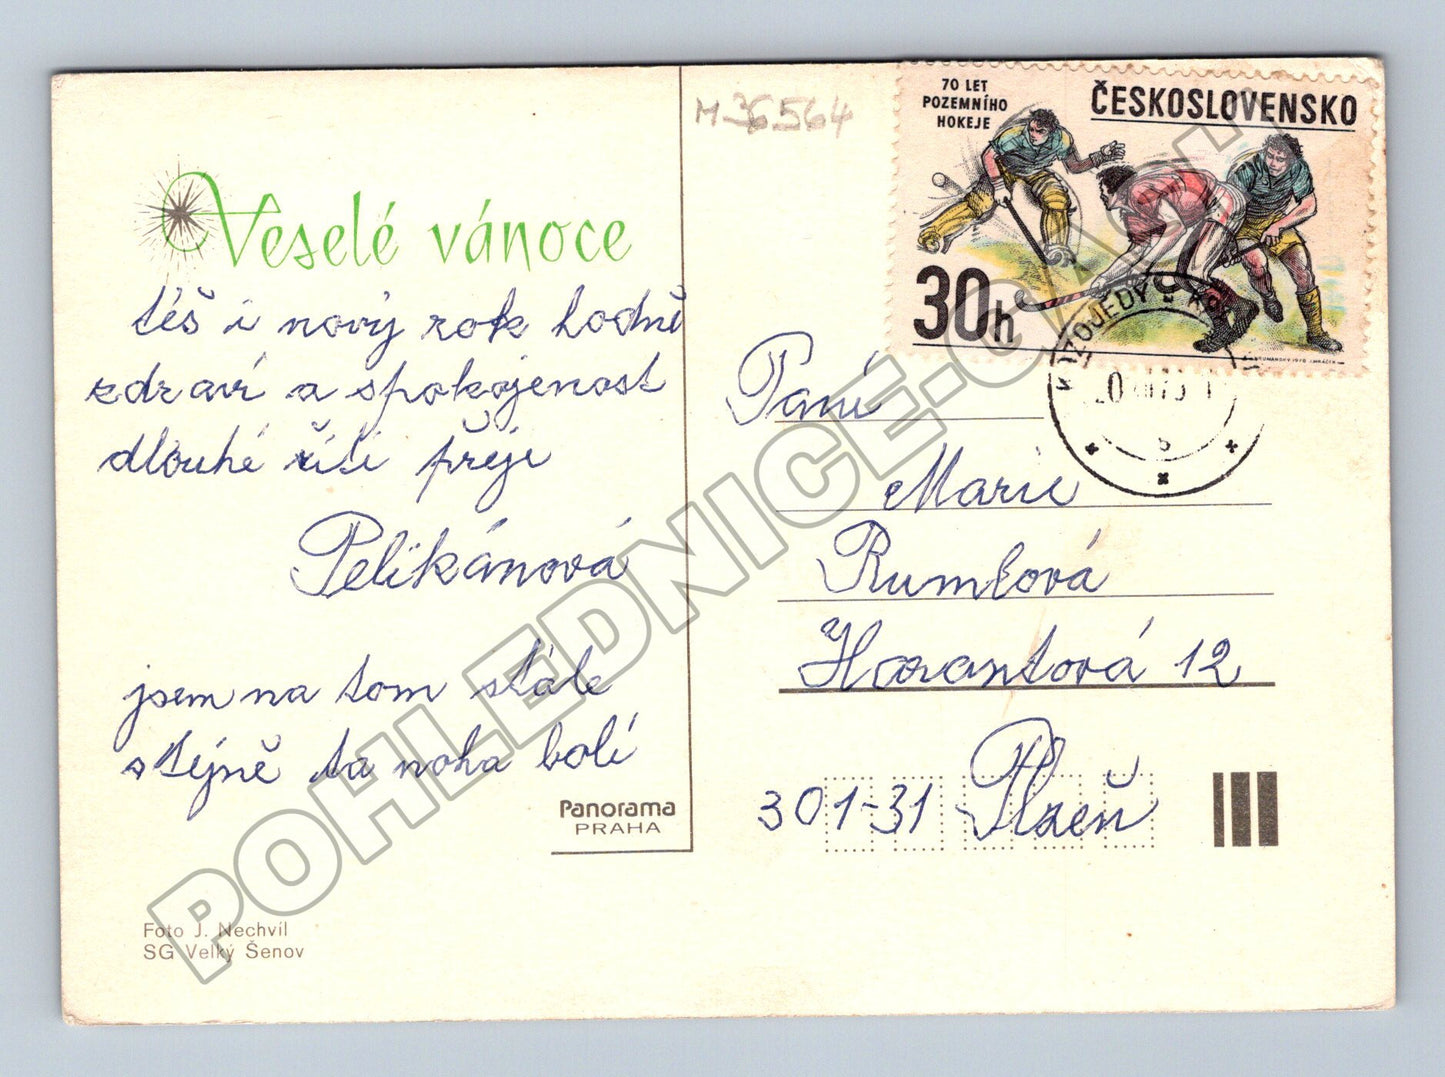 Veselé vánoce
též i nový rok hodně
zdraví a spokojenost
dlouhé žití přeje
Pelikánová
jsem na tom stále
stýně ta noha bolí
Panorama
PRAHA
Foto J. Nechvíl
SG Velký Šenov
M 36564
70 LET
POZEMNÍHO
HOKEJE
ČESKOSLOVENSKO
30h
Paní
Marie
Rumlová
Harantová 12
301-31 Plzeň
POHLEDNICE.CASH